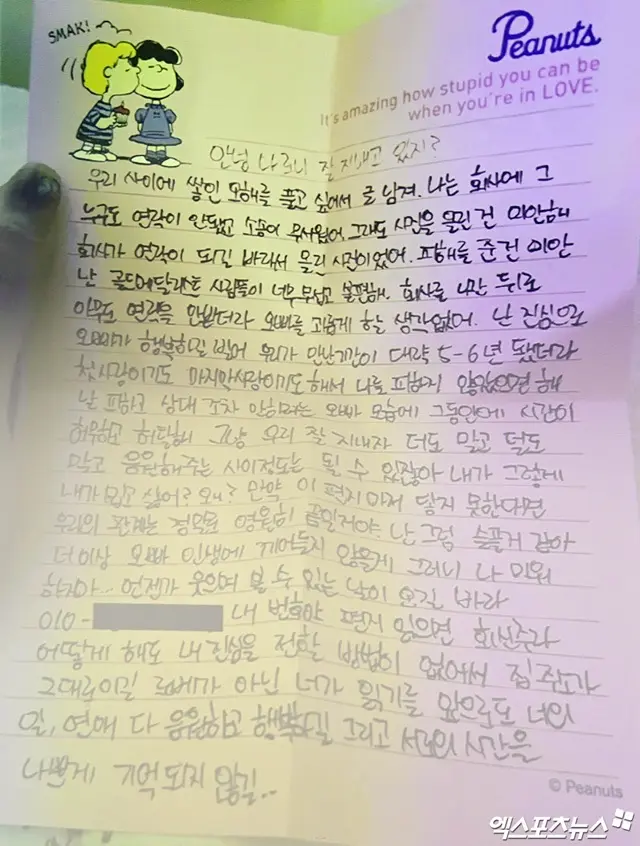 SMAK!
Peanuts
It's amazing how stupid you can be
when you're in LOVE.
안녕 나 잘 지내고 있지?
우리 사이에 쌓인 오해를 풀고 싶어서 글 남겨. 나는 회사에 그
누구도 연락이 안됐고 소송이 무서웠어, 그래도 사진을 올린 건 미안해
회사가 연락이 되길 바라서 올린 사진이었어. 피해를 준건 미안
난 골드메달리스트 사람들이 너무 무섭고 불편해. 회사를 나간 뒤로
아무도 연락을 안받더라 오빠를 괴롭게 할 생각없어. 난 진심으로
오빠가 행복하길 빌어 우리가 만난기간이 대략 5-6년 됐더라
첫사랑이기도 마지막사랑이기도 해서 나를 피하지 않았으면 해
날 피하고 상대 조차 안하려는 오빠 모습에 그동안에 시간이
허무하고 허탈해 그냥 우리 잘 지내자 더도 말고 덜도
말고 응원해주는 사이정도는 될 수 있잖아 내가 그렇게
내가 밉고 싫어? 왜? 만약 이 편지마저 닿지 못한다면
우리의 관계는 정말로 영원히 끝일거야. 난 그럼 슬플거 같아
더 이상 오빠 인생에 끼어들지 않을게 그러니 나 미워
하지마... 언젠가 웃으며 볼 수 있는 날이 오길 바라
010- 내 번호야 편지 읽으면 회신주라
어떻게 해도 내 진심을 전할 방법이 없어서 집 주소가
그대로이길 로베가 아닌 너가 읽기를 앞으로도 너의
일, 연애 다 응원하고 행복하길 그리고 서로의 시간을
나쁘게 기억되지 않길..
© Peanuts
엑스포츠뉴스